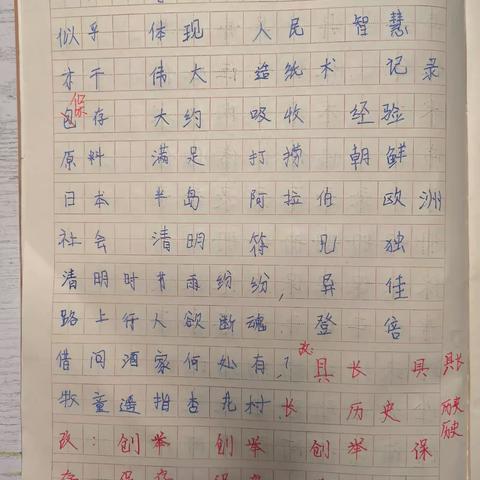 似乎 体现 人民 智慧
亦干 伟大 造纸术 记录
保
包存 大约 吸收 经验
原料 满足 打捞 朝鲜
日本 半岛 阿拉伯 欧洲
社会 清明 符 兄 独
清明时节雨纷纷, 异 佳
路上行人欲断魂 登 倍
借问酒家何处有,? 改: 具长 具 具长
牧童遥指杏花村 长 历史 历史
历史
改: 创举 创举 创举 保
存 保存